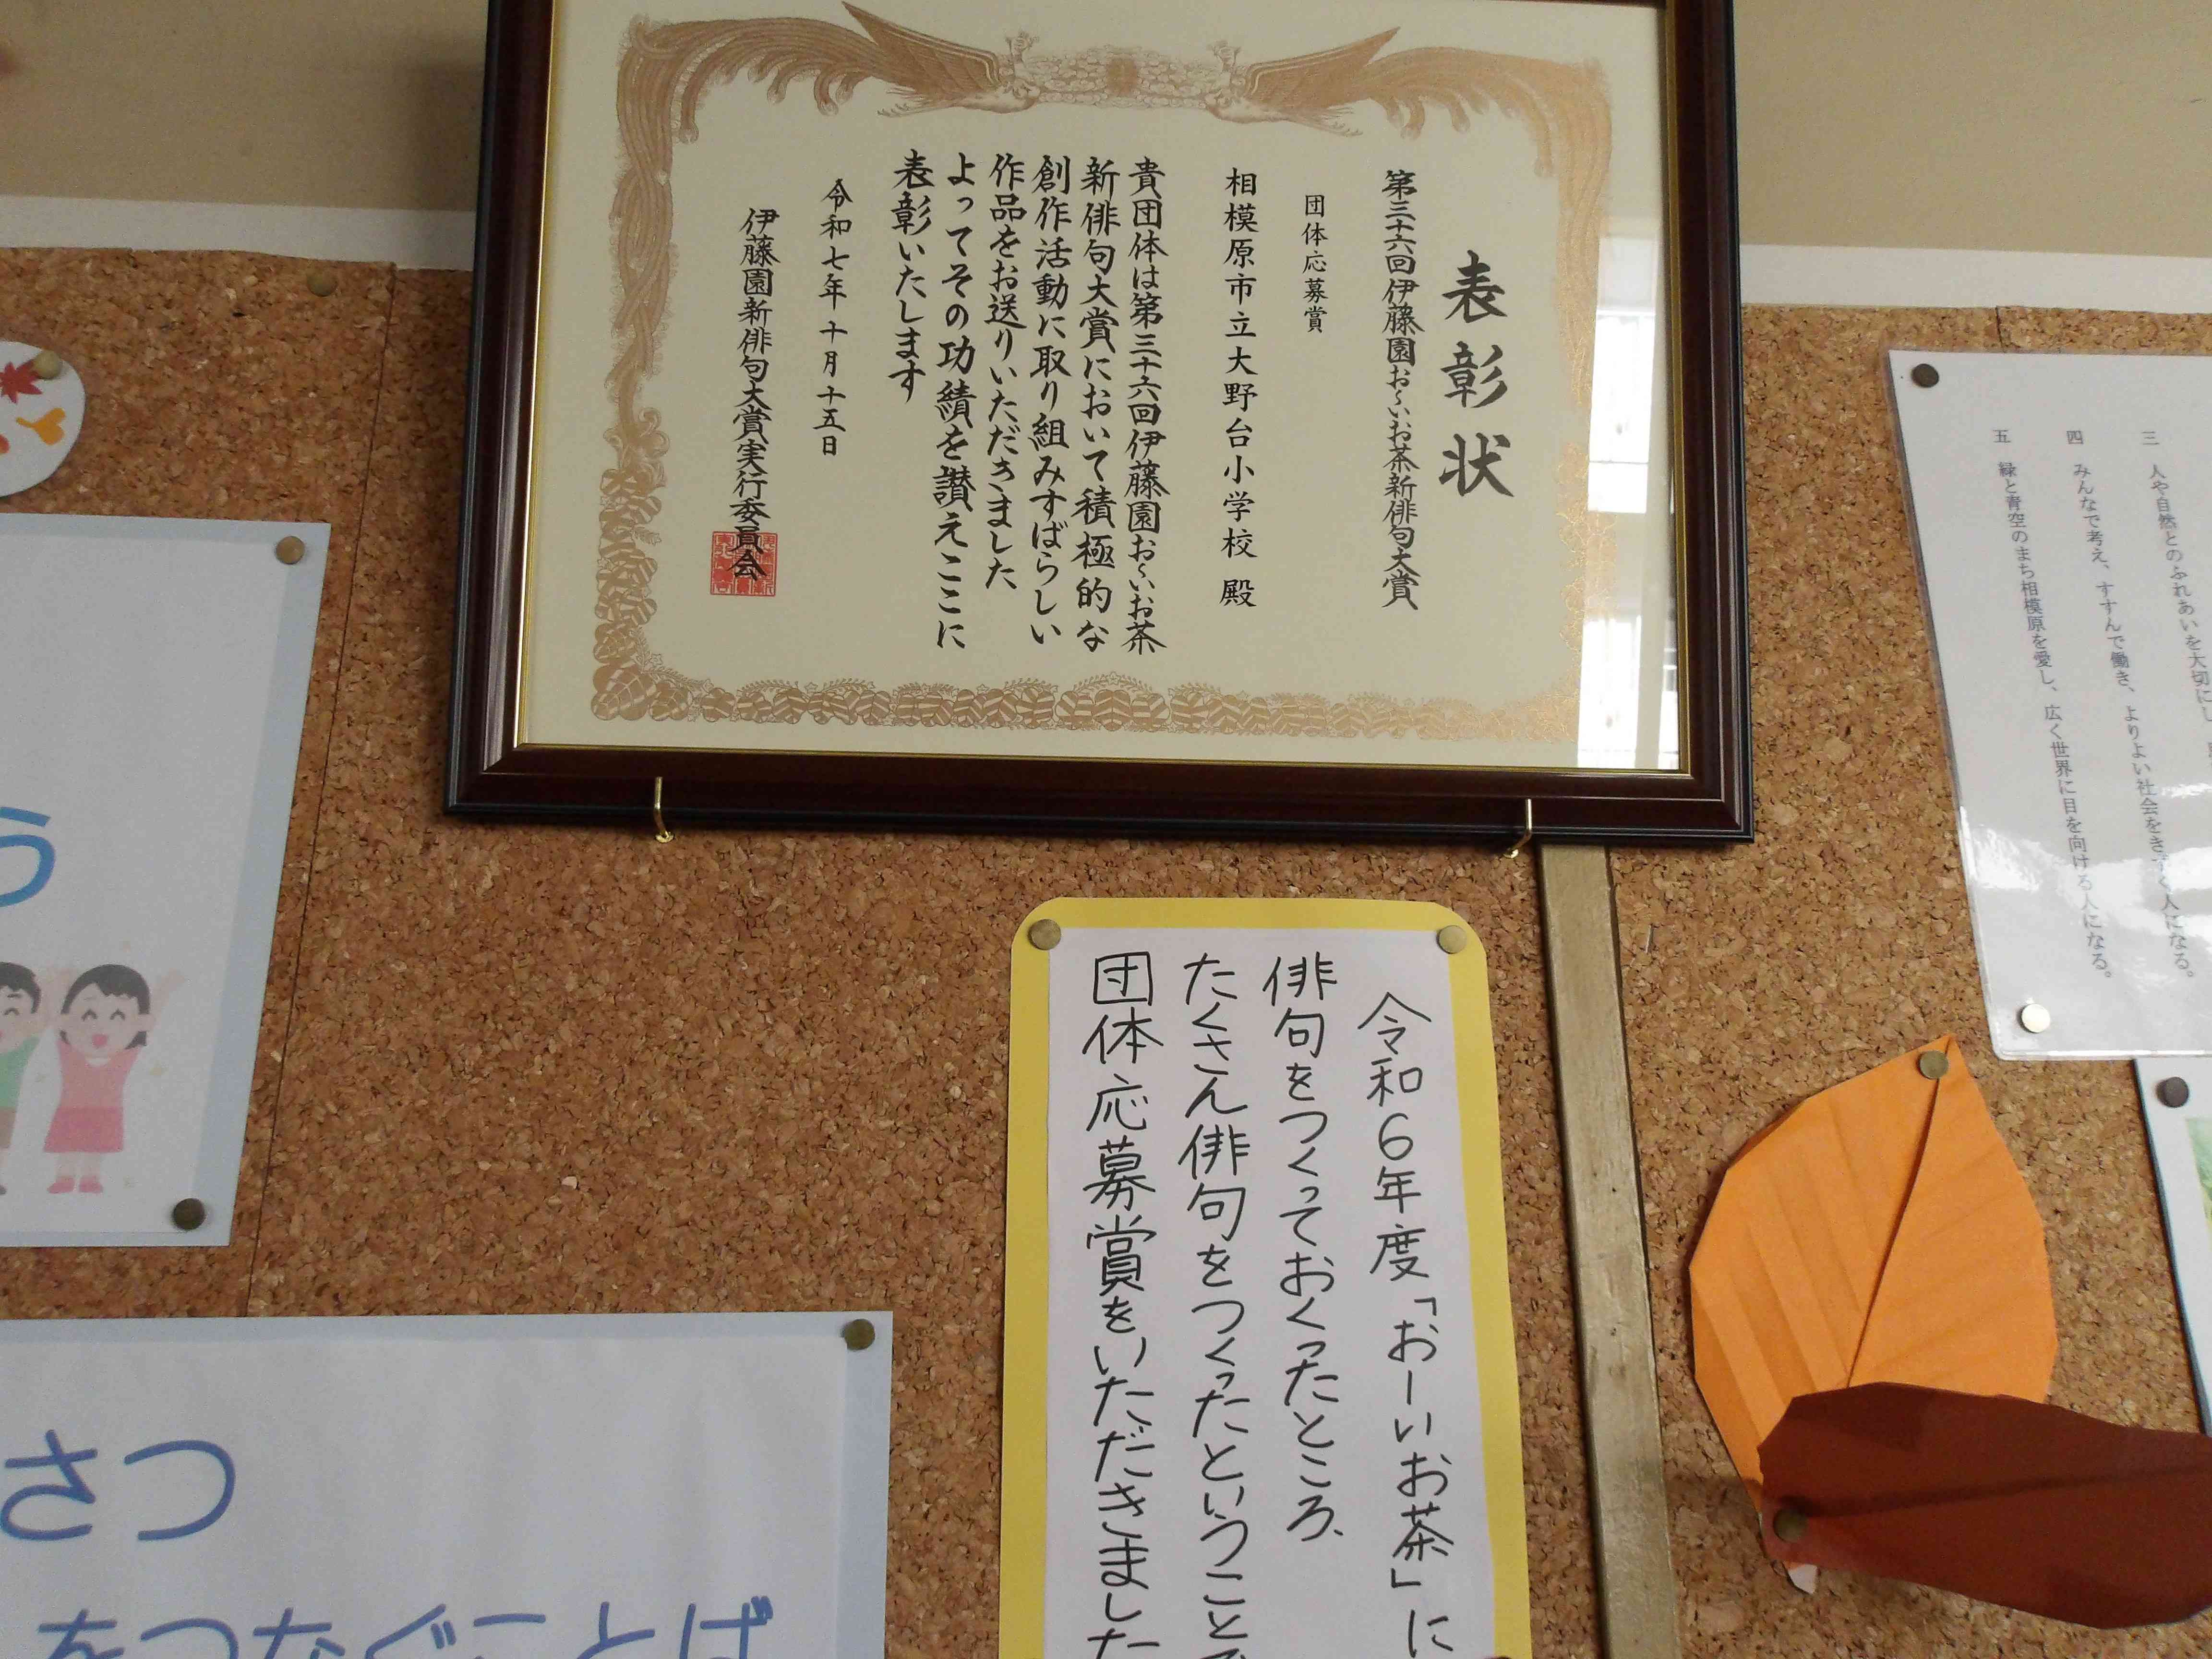 表彰状
第三十六回伊藤園お〜いお茶新俳句大賞
団体応募賞
相模原市立大野台小学校 殿
貴団体は第三十六回伊藤園お〜いお茶
新俳句大賞において積極的な
創作活動に取り組みすばらしい
作品をお送りいただきました
よってその功績を讃えここに
表彰いたします
令和七年十月十五日
伊藤園新俳句大賞実行委員会
令和6年度「おーいお茶」に
俳句をつくっておくったところ、
たくさん俳句をつくったということで
団体応募賞をいただきました
三 人や自然とのふれあいを大切にし
四 みんなで考え、すすんで働き、よりよい社会をきずく人になる。
五 緑と青空のまち相模原を愛し、広く世界に目を向ける人になる。
う
さつ
をつなぐことば